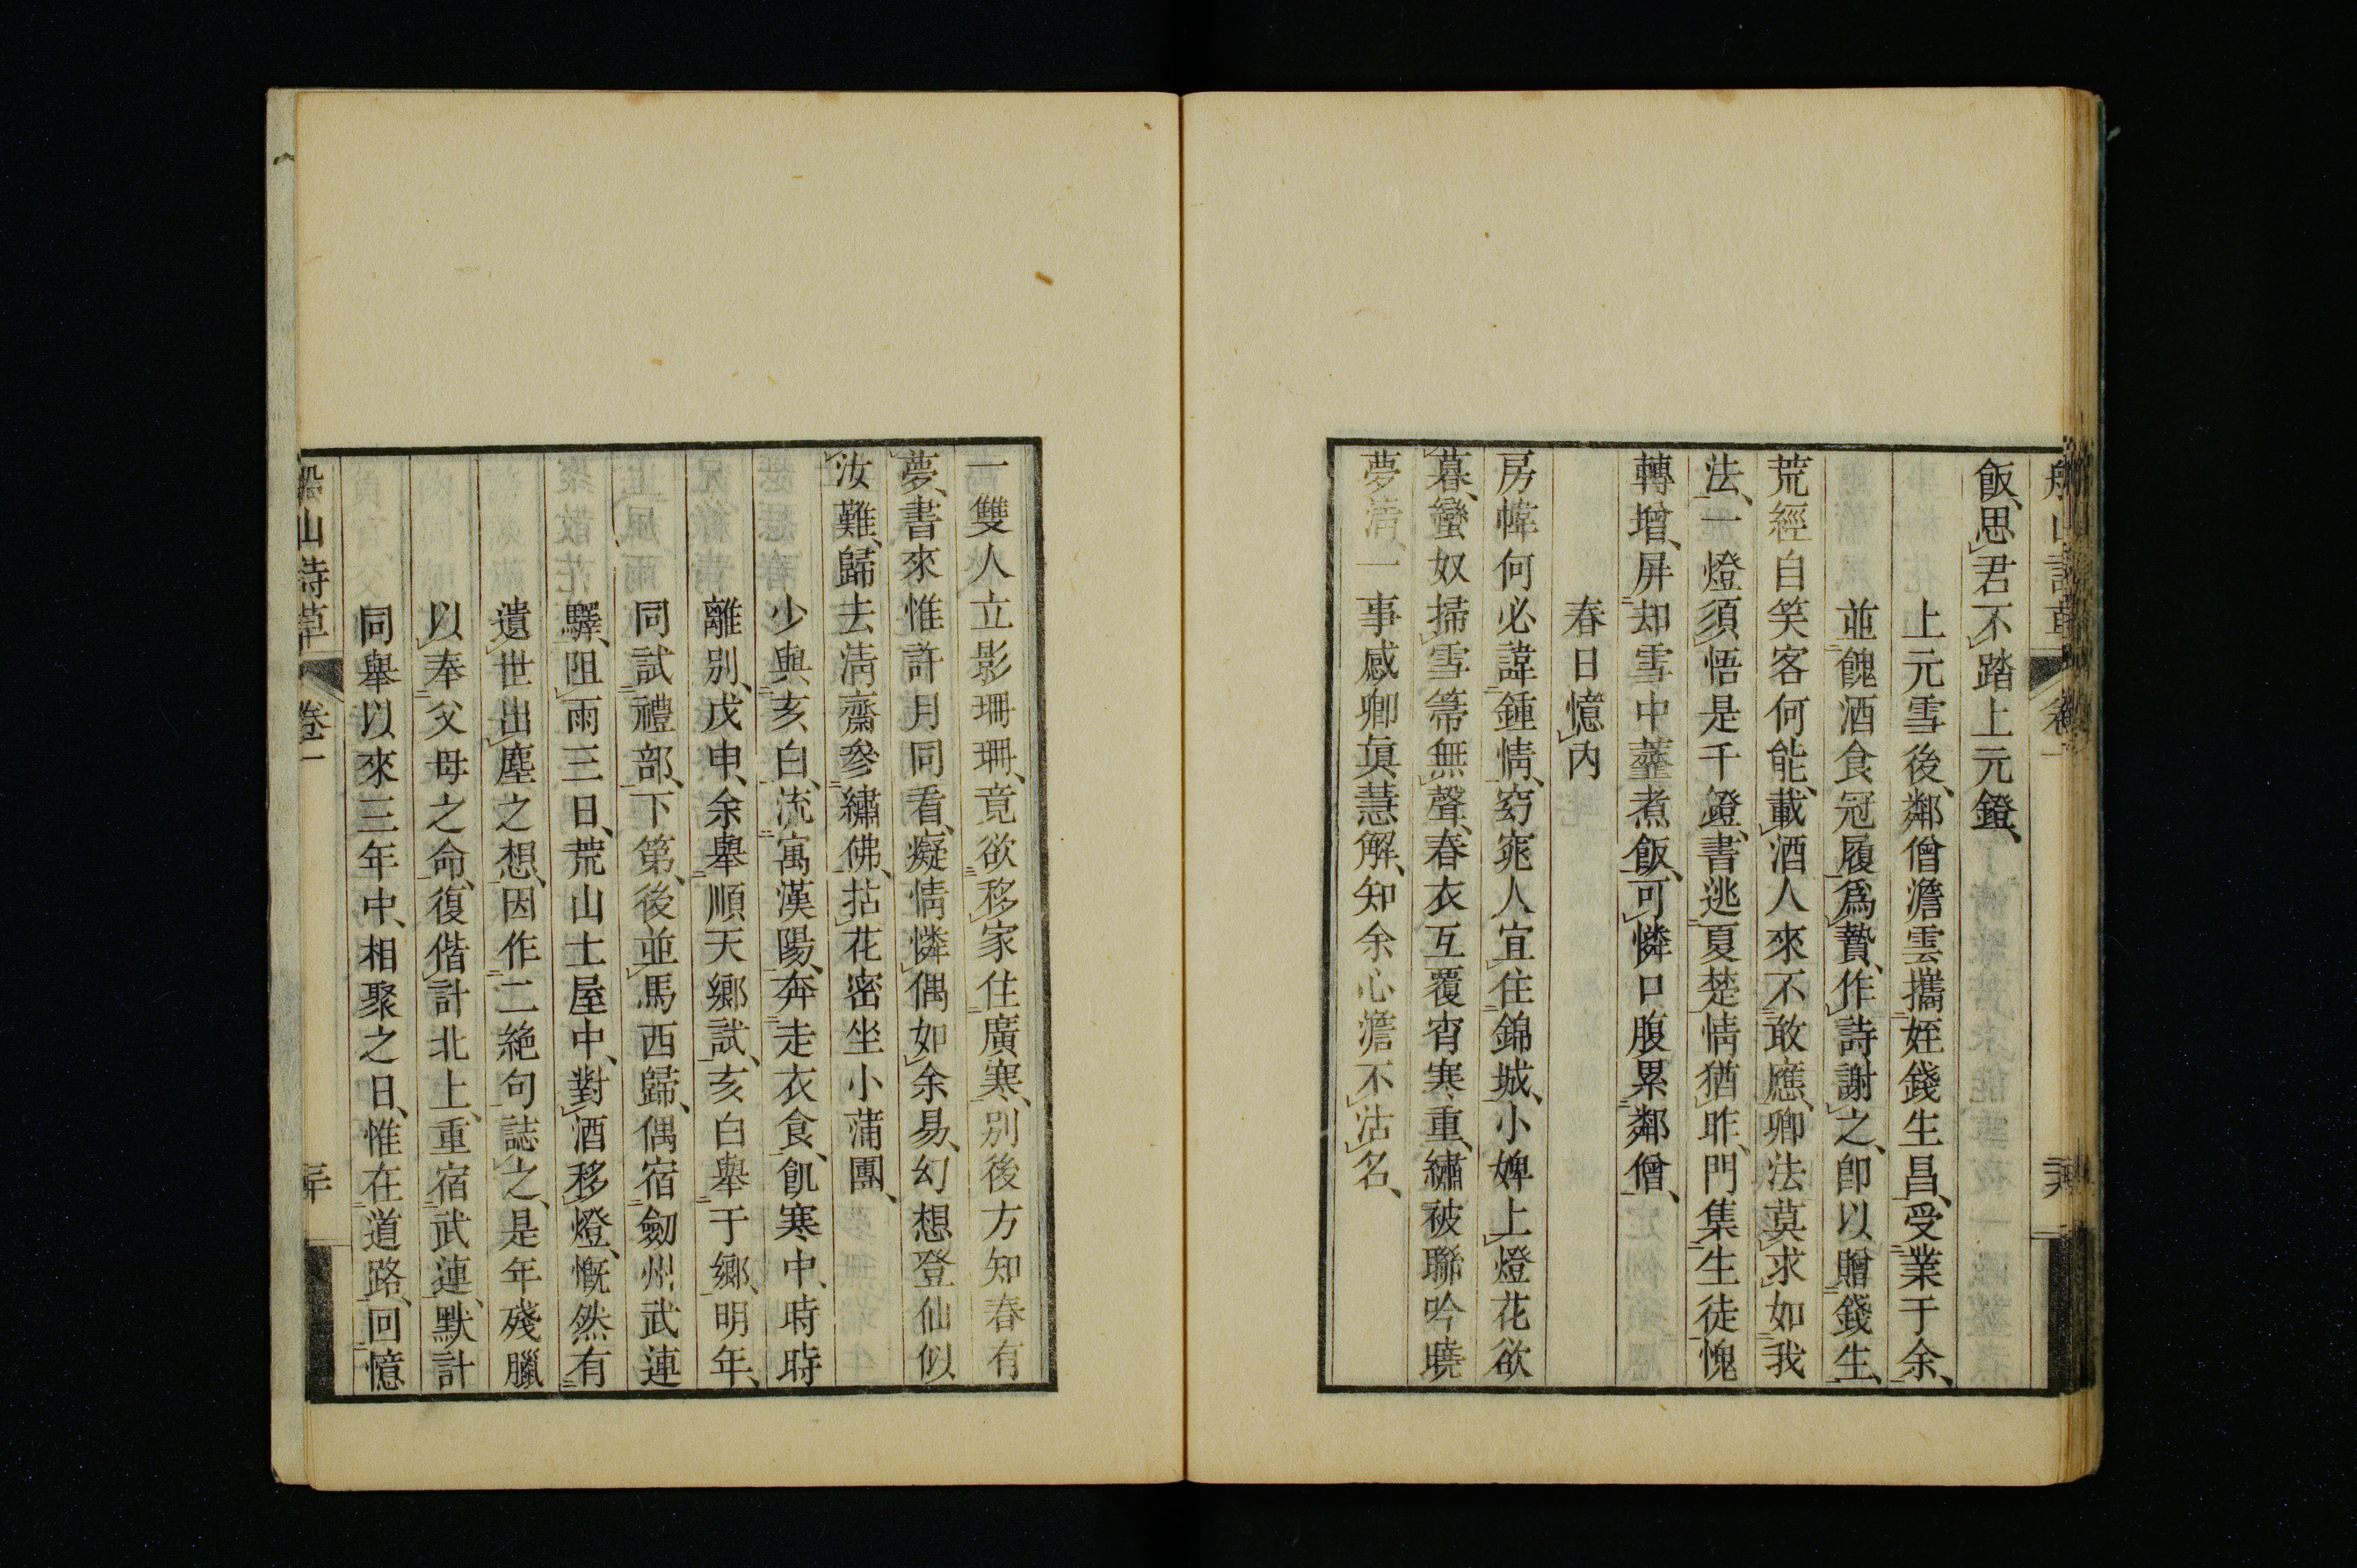 船山詩草 卷一
飯、思君不踏上元鐙、
上元雪後、鄰僧澹雲攜姪錢生昌、受業于余、
並餽酒食冠履爲贄、作詩謝之、卽以贈錢生、
荒經自笑客何能、載酒人來不敢應、卿法莫求如我
法、一燈須悟是千鐙、書逃夏楚情猶昨、門集生徒愧
轉增、屏却雪中虀煮飯、可憐口腹累鄰僧、
春日憶內
房幃何必諱鍾情、窈窕人宜住錦城、小婢上燈花欲
暮、蠻奴掃雪箒無聲、春衣互覆宵寒重、繡被聯吟曉
夢淸、一事感卿眞慧解、知余心澹不沽名、
一雙人立影珊珊、竟欲移家住廣寒、別後方知春有
夢、書來惟許月同看、癡情憐偶如余易、幻想登仙似
汝難、歸去淸齋參繡佛、拈花密坐小蒲團、
少與亥白、流寓漢陽、奔走衣食、飢寒中、時時
離別、戊申、余舉順天鄉試、亥白舉于鄉、明年、
同試禮部、下第、後並馬西歸、偶宿劒州武連
驛、阻雨三日、荒山土屋中、對酒移燈、慨然有
遺世出塵之想、因作二絕句誌之、是年殘臘
以奉父母之命、復偕計北上、重宿武連、默計
同舉以來三年中、相聚之日、惟在道路、回憶
船山詩草 卷一